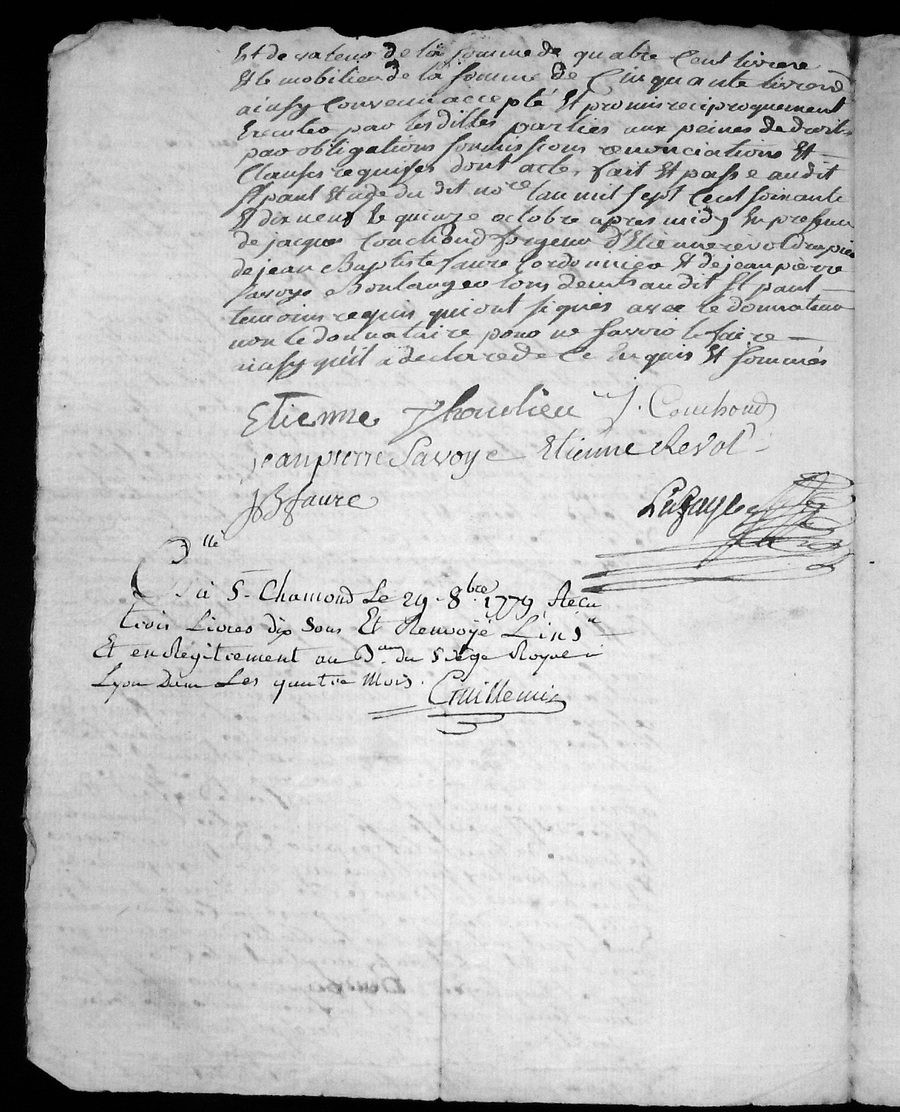 Et de valeur de la somme de quatre Cent livres
Et le mobilier de la somme de Cinquante livres
ainsy Convenu accepté Et promis reciproquement
Executer par les dittes parties aux peines de droits
par obligations soumissions renonciations Et
Clauses requises dont acte, fait Et passé audit
St paul Etude du dit nore lan mil sept Cent soixante
Et dix neuf le quinze octobre apres midy En presence
de jacques Couchoud forgeur d'Etienne revol drapier
de jean Baptiste faure Cordonnier Et de jean pierre
Savoye Boulanger tous deudit St paul
temoins requis qui ont signés avec le donnateur
non le donnataire pour ne savoir le faire
ainsy qu'il a declaré de Ce Enquis Et sommés
Etienne Thoulieu J. Couchoud
jean pierre Savoye Etienne Revol
JB faure
Lafaye
Clle a St Chamond Le 29 8bre 1779 Recu
trois Livres dix Sous Et Renvoyé Lins on
Et enRegitrement au Bau du Siege Royal
Lyon Dans Les quatre Mois. Guillemin